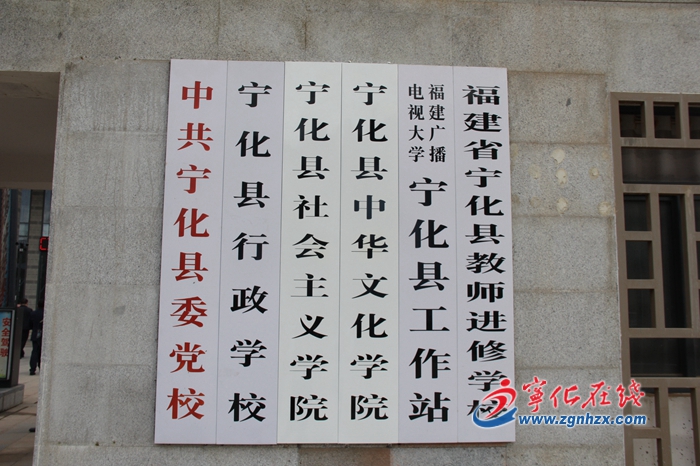 中共宁化县委党校
宁化县行政学校
宁化县社会主义学院
宁化县中华文化学院
福建广播
电视大学
宁化县工作站
福建省宁化县教师进修学校
宁化在线
www.zgnhzx.com
安全驾驶